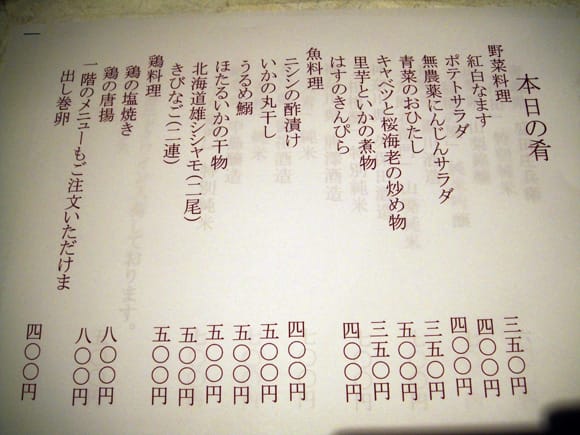 本日の肴
野菜料理
紅白なます 三五〇円
ポテトサラダ 四〇〇円
無農薬にんじんサラダ 四〇〇円
青菜のおひたし 三五〇円
キャベツと桜海老の炒め物 五〇〇円
里芋といかの煮物 三五〇円
はすのきんぴら 四〇〇円
魚料理
ニシンの酢漬け 四〇〇円
いかの丸干し 五〇〇円
うるめ鰯 五〇〇円
ほたるいかの干物 五〇〇円
北海道雄シシャモ(二尾) 五〇〇円
きびなご(二連) 五〇〇円
鶏料理
鶏の塩焼き 八〇〇円
鶏の唐揚 八〇〇円
一階のメニューもご注文いただけま
出し巻卵 四〇〇円